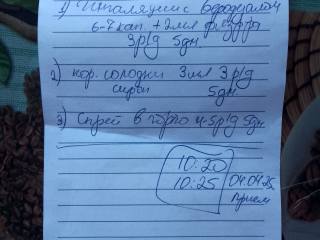 1) Ингаляции с беродуалом
6-7 кап. + 2 мл физ р-ра
3 р/д 5 дн.
2) кор. солодки 3 мл 3 р/д
сироп 5 дн.
3) Спрей в горло 4-5 р/д 5 дн
10:20
10:25
04.04.25
прием